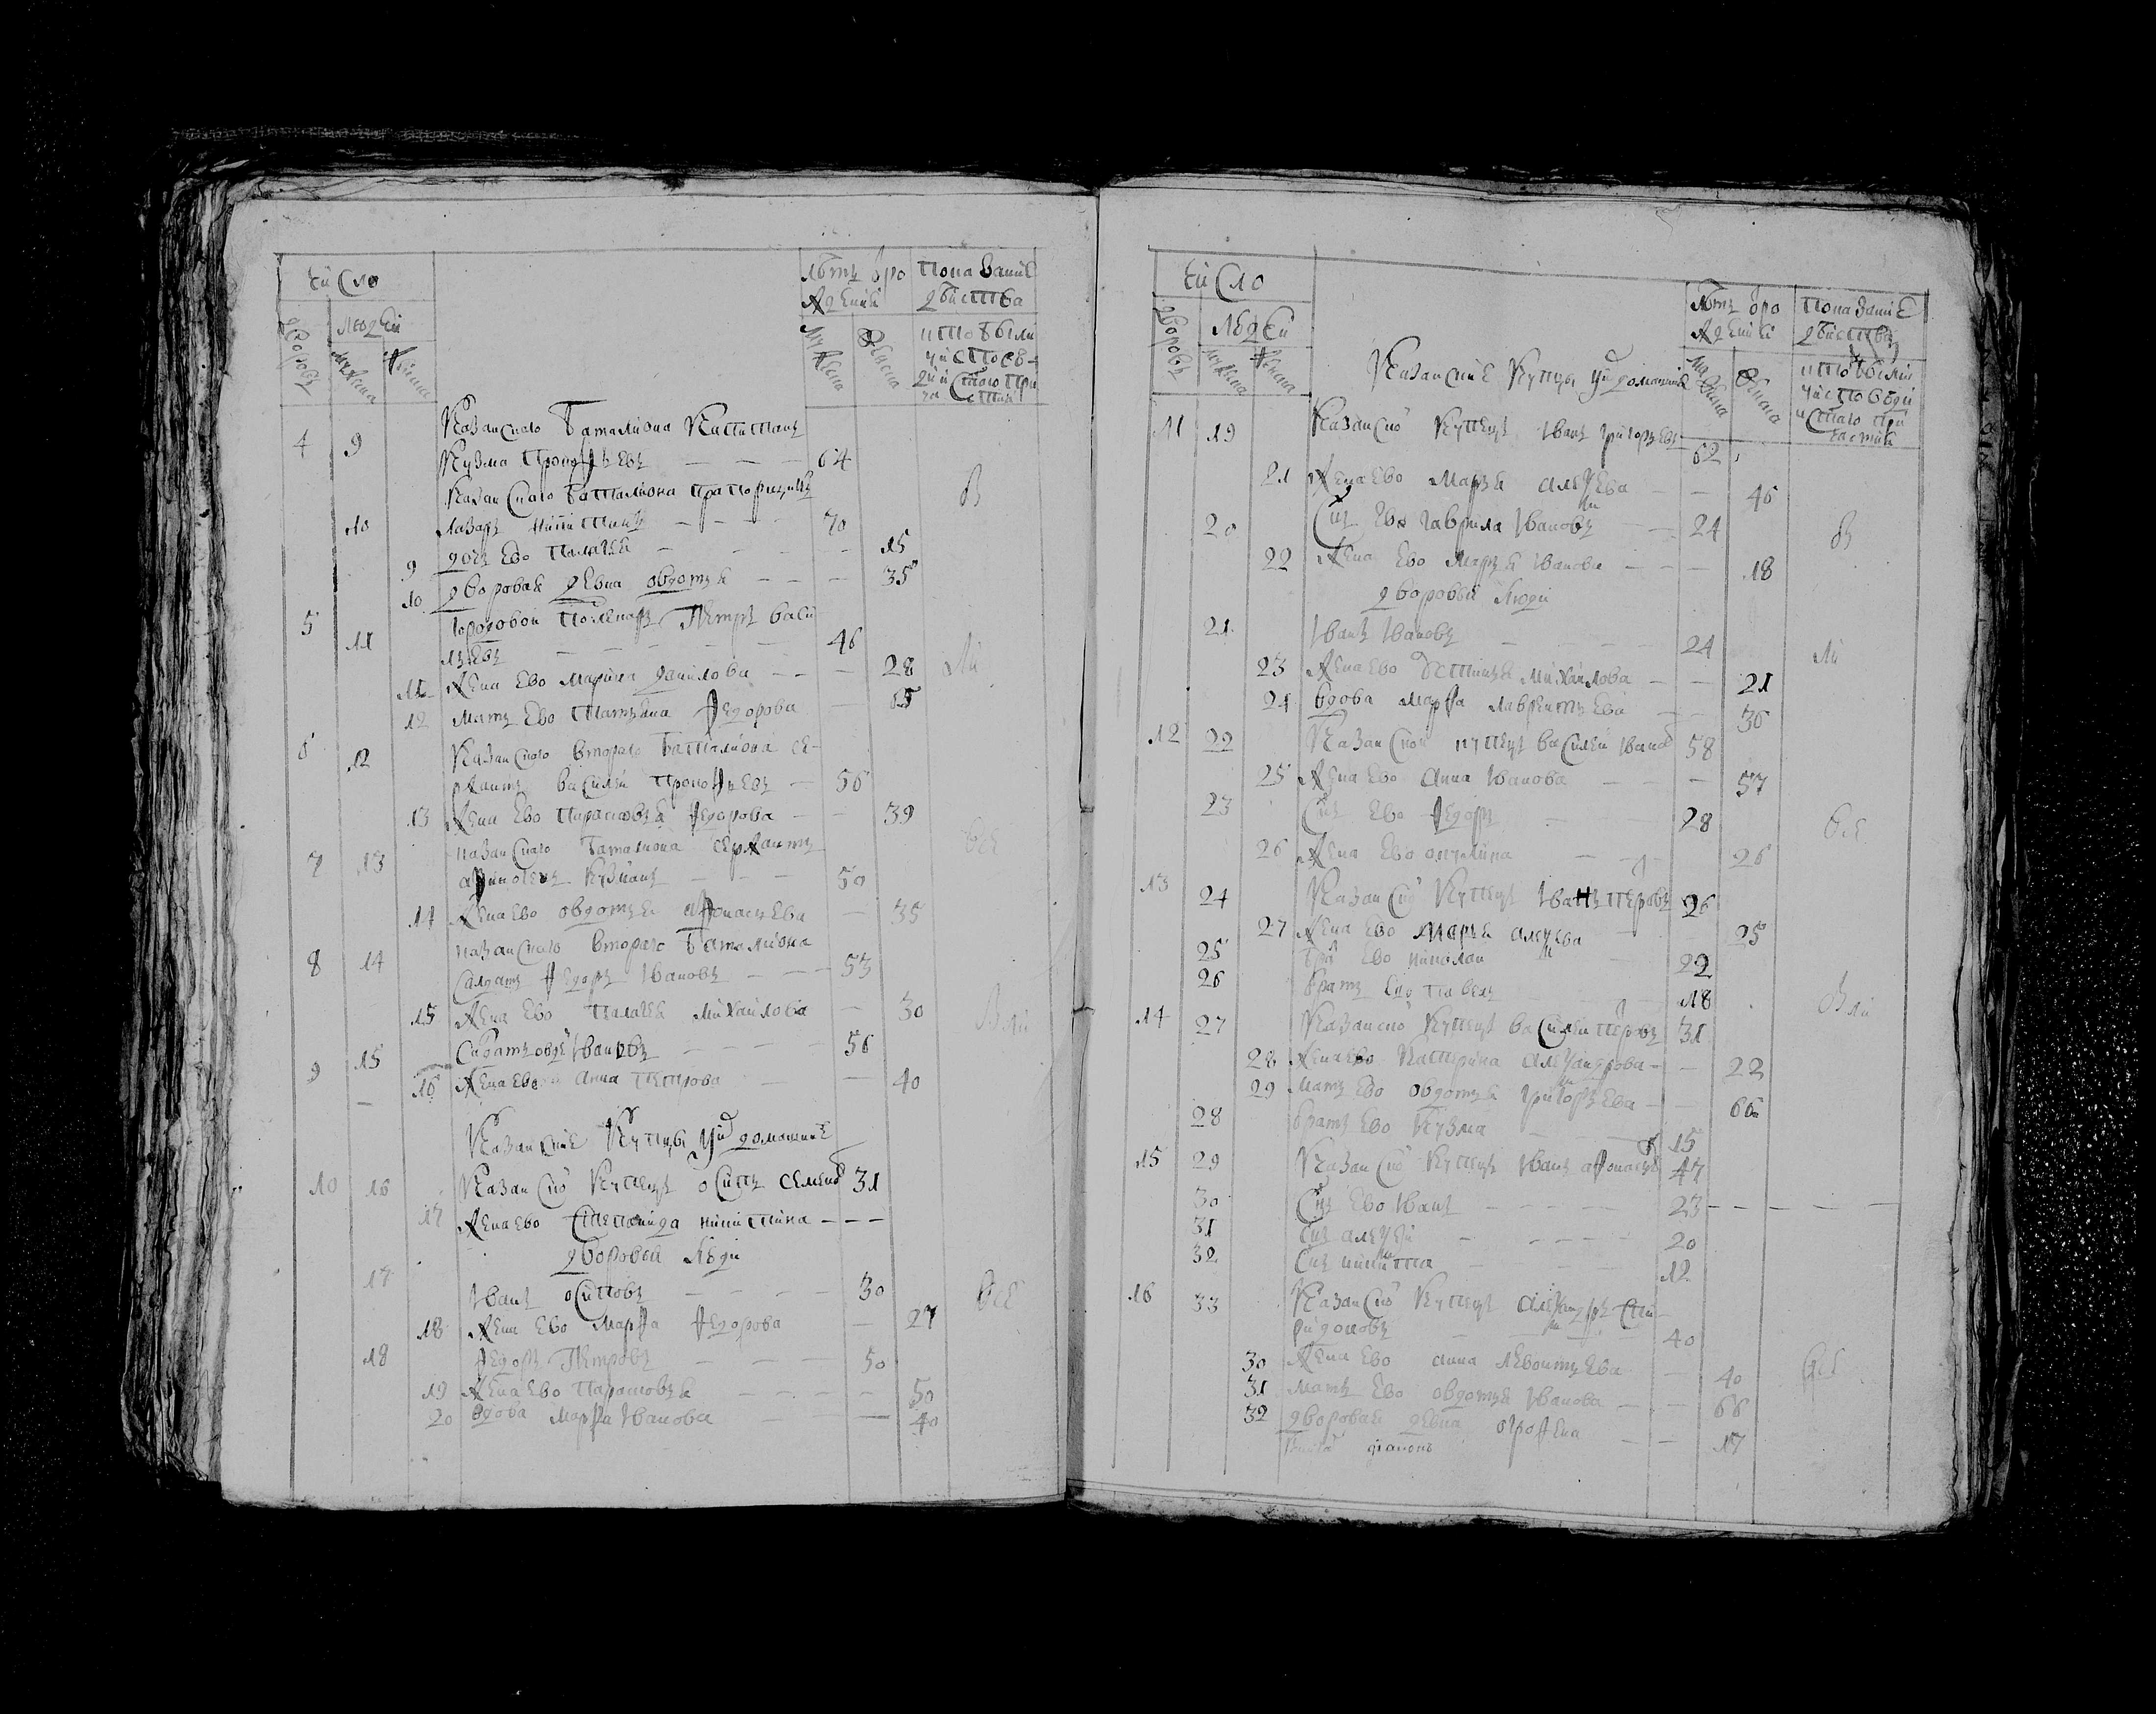 число
лѣтъ ѿро
показаниѣ
дворовъ
людей
ждения
дѣйства
мужеска
женска
мужеска
женска
кто были
у исповѣ-
ди и святаго при
частия
4 9 Казанскаго баталиона капитанъ
Кузма Прокофьевъ — — — 64
Казанскаго баталиона прапорщикъ
10 Лазарь Никитинъ — — — 70
9 дочь ево Палагея — — — 15
10 дворовая девка Овдотья — — — 35
5 11
Петръ Васи
льевъ — — — 46
11 жена ево Марина Данилова — — 28
12 мать ево Татьяна Федорова — 85
6 12 Казанскаго втораго баталиона се-
ржантъ Василей Прокофьевъ — 56
13 жена ево Парасковья Федорова — — 39
7 13 казанскаго баталиона сержантъ
Кузминъ — — — 50
14 жена ево Овдотья Афонасьева — 35
8 14 казанскаго втораго баталиона
салдатъ Федоръ Ивановъ — — — 53
15 жена ево Палагея Михаилова — 30
9 15 Ивановъ — — — — 56
16 жена ево Анна Петрова — — 40
Казанские купцы и их домашние
10 16 Казанской купецъ Осипъ Семено 31
17 жена ево Степанида Никитина — — —
дворовыя люди
17 Иванъ Осиповъ — — — — 30
18 жена ево Марфа Федорова — 27
18 Федоръ Петровъ — — — 50
19 жена ево Парасковья — — — — 50
20 вдова Марфа Иванова — — 40
все
число
лѣтъ ѿро
показаниѣ
дворовъ
людей
ждения
дѣйства
мужеска
женска
женска
кто были
у исповеди
и святаго при
частия
Казанские купцы и их домашния
11 19 Казанской купецъ Иванъ Григорьевъ 62
21 жена ево Марья Алексеева — — 46
20 сынъ ево Гаврила Ивановъ — 24
22 жена ево Марья Иванова — — — 18
дворовыя люди
21 Иванъ Ивановъ — — — 24
23 жена ево Устинья Михаилова — — 21
24 вдова Марфа Лаврентьева — — 36
12 22 Казанской купецъ Василей Ивано 58
25 жена ево Анна Иванова — — — 57
23 сынъ ево Федоръ — — 28
26 жена ево Окулина — — 26
13 24 Казанской купецъ Иванъ Петровъ 26
27 жена ево Марья Алексеева — 25
25 братъ ево Николай — 22
26 братъ ево Павелъ 18
14 27 Казанской купецъ Василей Петровъ 31
28 жена ево Катерина Александрова — — 22
29 мать ево Овдотья Григорьева — — 66
28 братъ ево Кузма — — 15
15 29 Казанской купецъ Иванъ Афонасье 47
30 сынъ ево Иванъ — — — — — 23 — — — —
31 сынъ Алексей — — — — — 20
32 сынъ Никита — — — 12
16 33 Казанской купецъ Александръ Спи-
ридоновъ — — — 40
30 жена ево Анна Левонтьева — 40
31 мать ево Овдотья Иванова — — 66
32 дворовая девка Огрофена — — 17
все